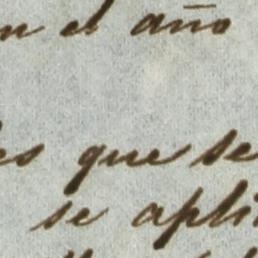 en el año
es que se
se apli